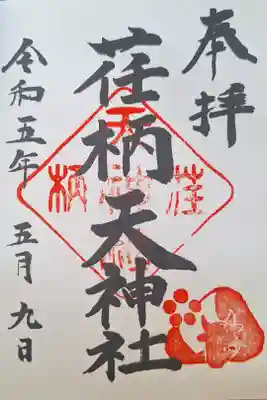 奉拝
荏柄天神社
令和五年 五月 九日